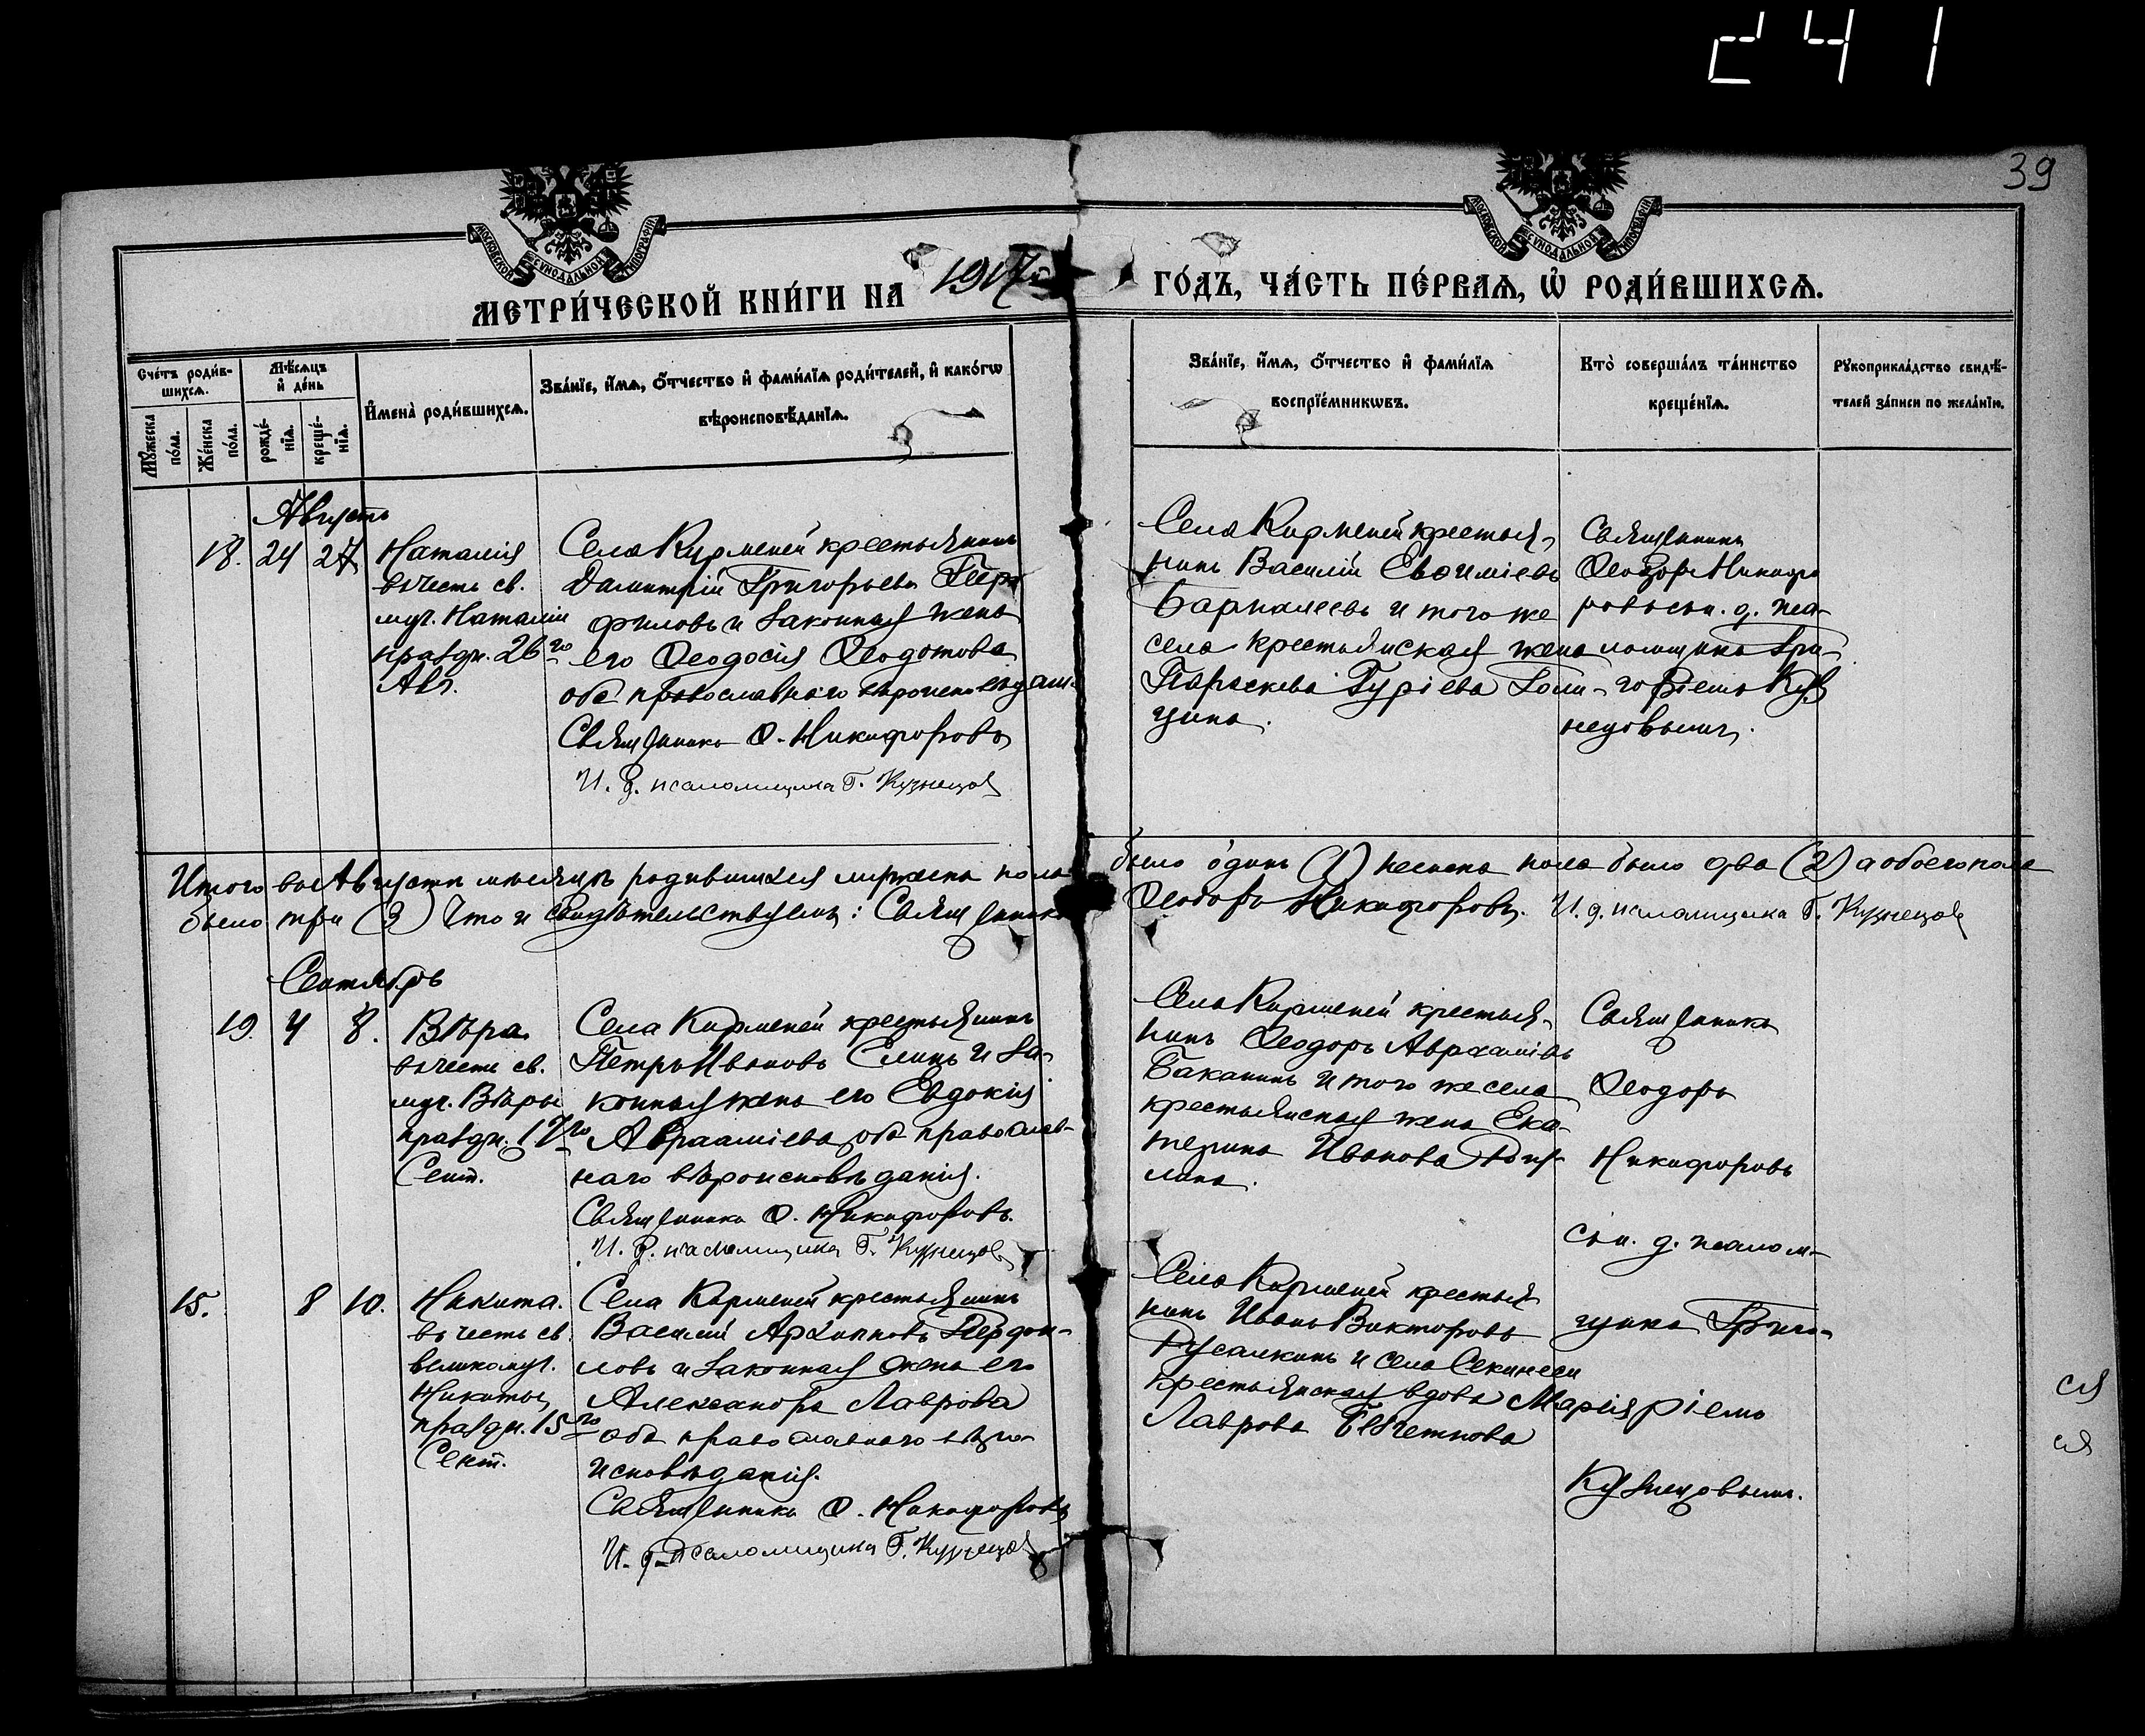 241
39
МОСКОВСКОЙ СУНОДАЛЬНОЙ ТИПОГРАФІИ
МОСКОВСКОЙ СУНОДАЛЬНОЙ ТИПОГРАФІИ
МЕТРИ́ЧЕСКОЙ КНИ́ГИ НА 1917й ГО́ДЪ, ЧА́СТЬ ПЕ́РВАѦ, Ѡ҆ РОДИ́ВШИХСѦ.
Сче́тъ роди́в-
шихсѧ.
Мꙋ́жеска по́ла.
Же́нска по́ла.
Мѣ́сѧцъ
и҆ де́нь
рожде́-
нїѧ.
креще́-
нїѧ.
И҆мена̀ роди́вшихсѧ.
Зва́нїе, и҆́мѧ, ѻ҆́тчество и҆ фами́лїѧ роди́телей, и҆ како́гѡ
вѣроисповѣ́данїѧ.
Зва́нїе, и҆́мѧ, ѻ҆́тчество и҆ фами́лїѧ
воспрїе́мникѡвъ.
Кто̀ соверша́лъ та́инство
креще́нїѧ.
Рꙋкоприкла́дство свидѣ́-
телей за́писи по жела́нїю.
Августъ
18. 24 27
Наталія
въ честь св.
муч. Наталіи
праздн. 26го
Авг.
Села Кирменей крестьянинъ
Димитрій Григорьевъ
филовъ и законная жена
его Ѳеодосія Ѳеодотова
оба православнаго вѣроисповѣдан.
Священникъ Ѳ. Никифоровъ
И. д. псаломщика Г. Кузнецов
Села Кирменей крестья-
нинъ Василій Евѳиміевъ
и того же
села крестьянская жена
Параскева Гуріева
цина.
Священникъ
Ѳеодоръ Никифо
ровъ съ и. д. пса-
ломщика Гри-
горіемъ Куз
нецовымъ.
Итого въ Августѣ мѣсяцѣ родившихся мужеска пола было одинъ (1) женска пола было два (2) а обоего пола
было три (3) Что и свидѣтельствуемъ: Священникъ Ѳеодоръ Никифоровъ. И. д. псаломщика Г. Кузнецов
Сентябрь
19. 4 8.
Вѣра
въ честь св.
муч. Вѣры
праздн. 17го
Сент.
Села Кирменей крестьянинъ
Петръ Ивановъ Елинъ и за-
конная жена его Евдокія
Авраамiева оба православ-
наго вѣроисповѣданія.
Священникъ Ѳ. Никифоровъ.
И. д. псаломщика Г. Кузнецов
Села Кирменей крестья-
нинъ Ѳеодоръ Авраамiевъ
Баканинъ и того же села
крестьянская жена Ека-
терина Иванова
лина.
Священникъ
Ѳеодоръ
Никифоровъ
съ и. д. псалом-
щика Григо-
ріемъ
Кузнецовымъ.
15. 8 10.
Никита.
въ честь св.
великомуч.
Никиты,
праздн. 15го
Сент.
Села Кирменей крестьянинъ
Василій Архиповъ
ловъ и законная жена его
Александра Лаврова
оба православнаго вѣро-
исповѣданія.
Священникъ Ѳ. Никифоровъ
И. д. псаломщика Г. Кузнецов
Села Кирменей крестья-
нинъ Иванъ Викторовъ
Русалкинъ и села Секинеси
крестьянская вдова Марія
Лаврова
ся
ся